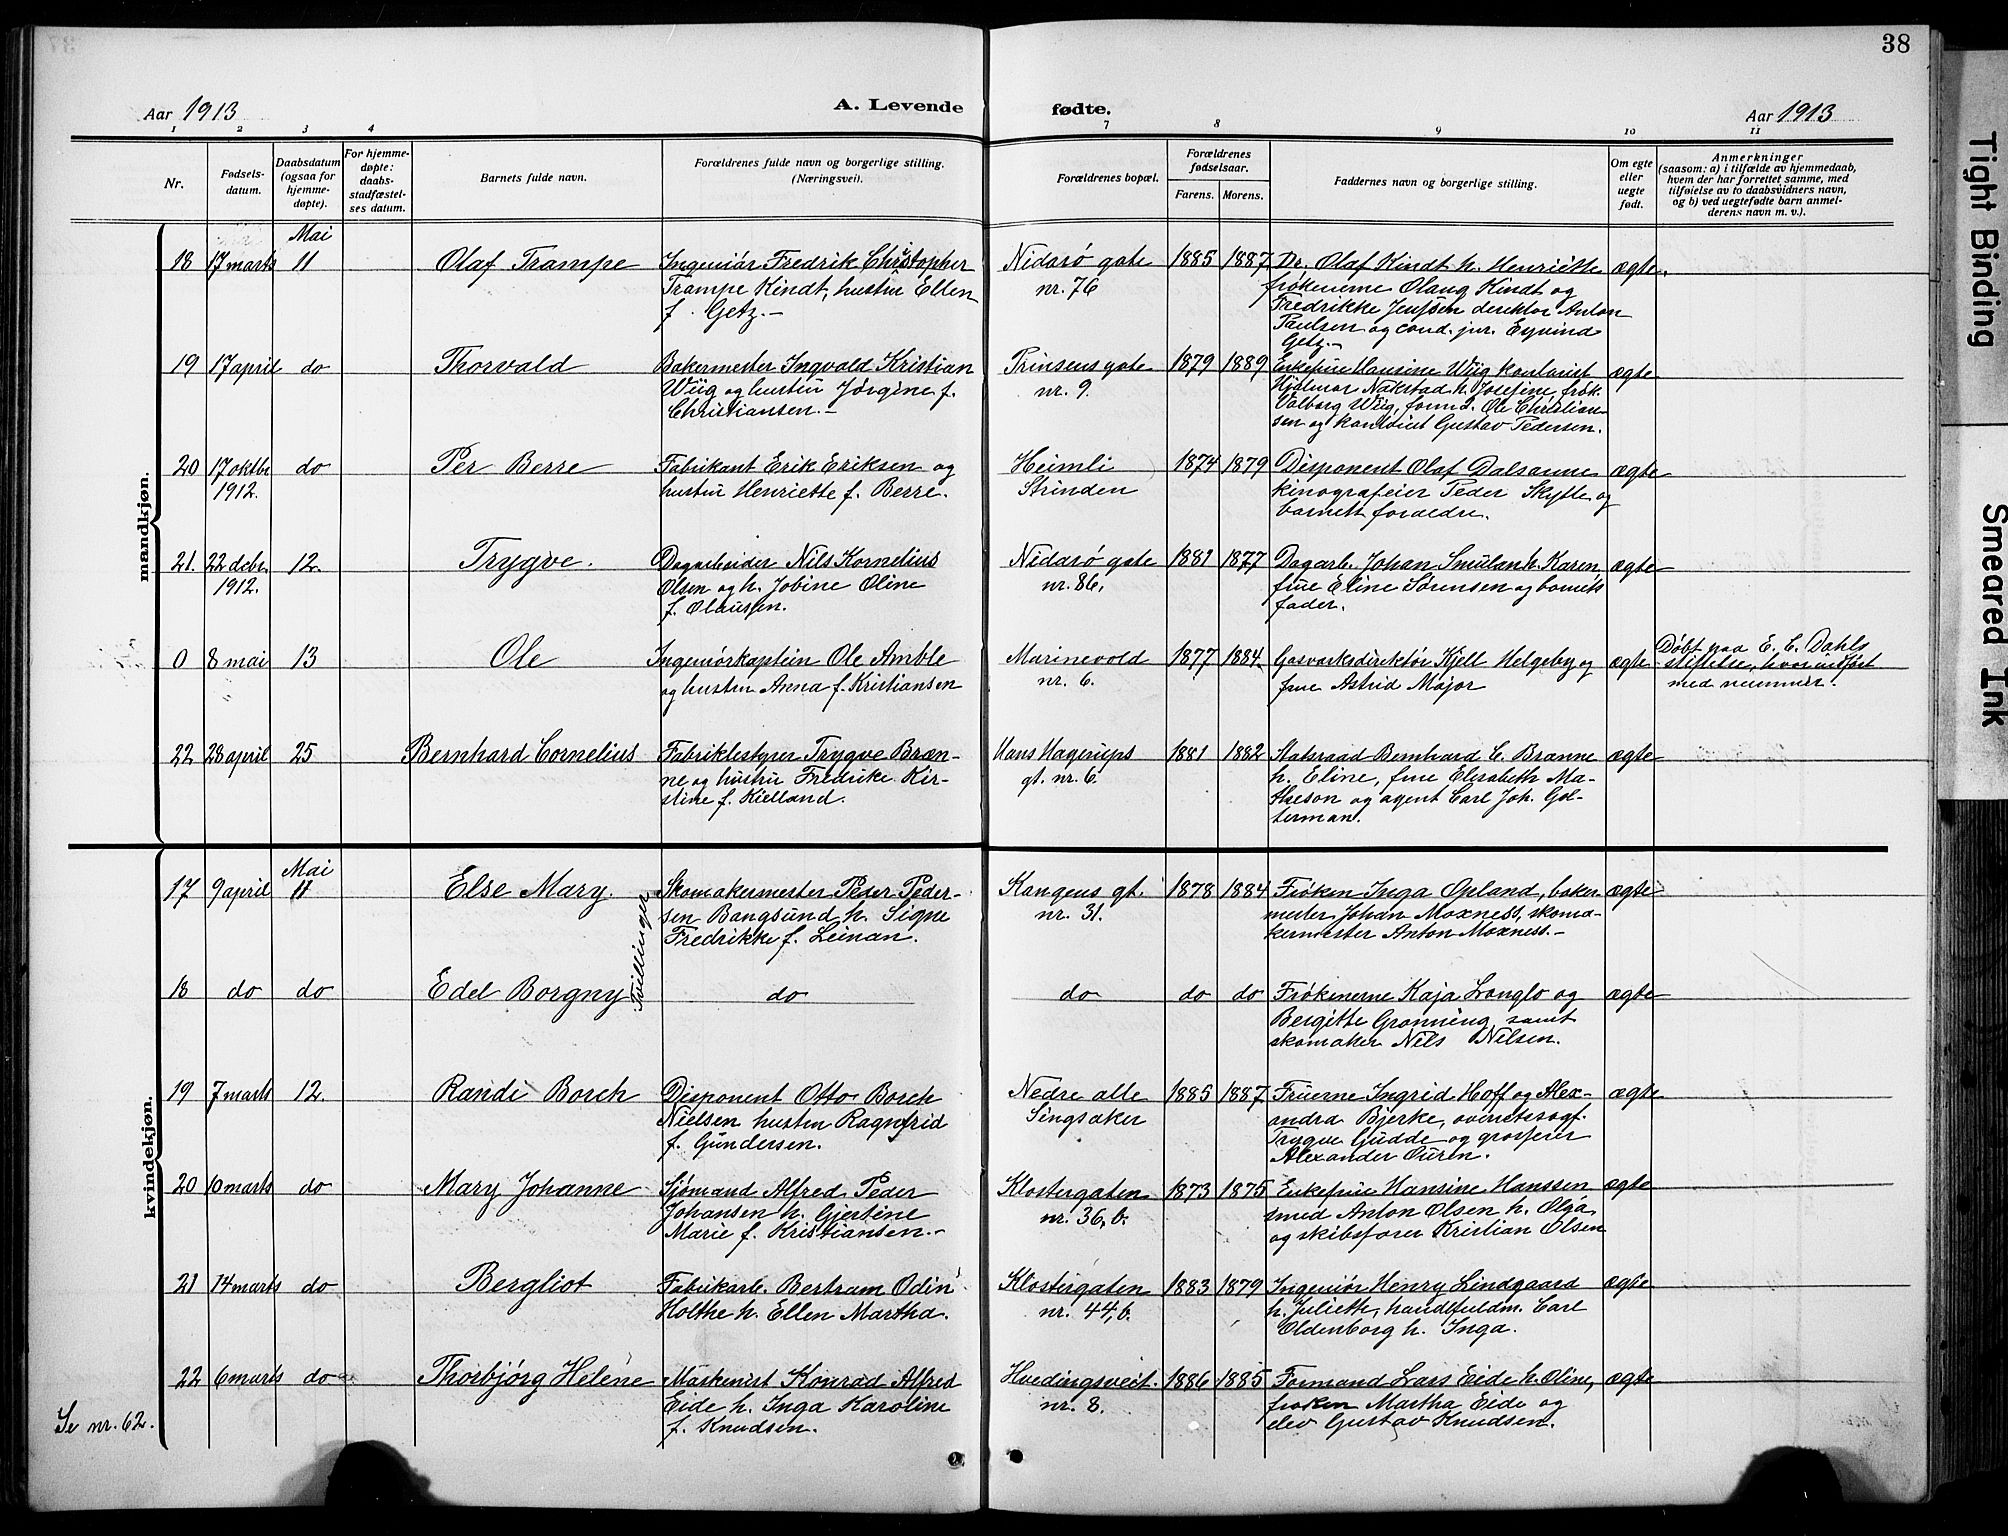 38
Aar 1913
A. Levende
fødte.
Aar 1913
1 2 3 4 7 8 9 10 11
Nr.
Fødsels-
datum.
Daabsdatum
(ogsaa for
hjemme-
døpte).
For hjemme-
døpte:
daabs-
stadfæstel-
ses datum.
Barnets fulde navn.
Forældrenes fulde navn og borgerlige stilling.
(Næringsvei).
Forældrenes bopæl.
Forældrenes
fødselsaar.
Farens. Morens.
Faddernes navn og borgerlige stilling.
Om egte
eller
uegte
født.
Anmerkninger
(saasom: a) i tilfælde av hjemmedaab,
hvem der har forrettet samme, med
tilføielse av to daabsvidners navn,
og b) ved uegtefødte barn anmel-
derens navn m. v.).
mandkjøn.
Mai
18 17 marts 11 Olaf Trampe
Ingeniør Fredrik Christopher
Trampe Kindt, hustru Ellen
f. Getz.-
Nidarø gate
nr. 76
1885 1887
Dr. Olaf Kindt h. Henriette
frøknerne Olaug Kindt og
Fredrikke Jenssen direktør Anton
Paulsen og cand. jur. Eyvind
Getz.-
ægte.
19 17 april do Thorvald
Bakermester Ingvald Kristian
Wiig og hustru Jørgine f.
Christiansen.-
Prinsens gate
nr. 9.
1879 1889
Enkefrue Hansine Wiig kontorist
Hjalmar Nakstad h. Josefine, frøk.
Valborg Wiig, formd. Ole Christian-
sen og kontorist Gustav Pedersen.
ægte
20 17 oktbr 1912. do Per Berre
Fabrikant Erik Eriksen og
hustru Henriette f. Berre.
Heimli
Strinden
1874 1879
Disponent Olaf Dalsaune
kinografeier Peder Skytte og
barnets forældre.
ægte
21. 22 debr. 1912. 12. Trygve.
Dagarbeider Nils Kornelius
Olsen og h. Jobine Oline
f. Olaussen.
Nidarø gate
nr. 86,
1881 1877
Dagarb. Johan Smulan h. Karen
frue Eline Sørensen og barnets
fader.
ægte
0 8 mai 13 Ole
Ingeniørkaptein Ole Amble
og hustru Anna f. Kristiansen
Marinevold
nr. 6.
1877 1884
Gasværksdirektør Kjell Helgeby og
frue Astrid Major
ægte
Døbt paa E. C. Dahls
stiftelse, hvor indført
med nummer.
22 28 april 25 Bernhard Cornelius
Fabrikbestyrer Trygve Bræn-
ne og hustru Fredrike Kir-
stine f. Kielland.
Hans Hagerups
gt. nr. 6.
1881 1882
Statsraad Bernhard C. Brænne
h. Eline, frue Elisabeth Ma-
theson og agent Carl Joh. Gol-
terman.
ægte
kvindekjøn.
Mai
17 9 april 11 Else Mary.
Tvillinger
Skomakermester Peder Peder-
sen Bangsund h. Signe
Fredrikke f. Leinan.
Kongens gt.
nr. 31.
1878 1884
Frøken Inga Opland, baker-
mester Johan Moxness, skoma-
kermester Anton Moxness.-
ægte
18 do do Edel Borgny
do
do
do do
Frøknerne Kaja Langlo og
Bergitte Grønning samt
skomaker Nils Nilsen.
ægte
19 7 marts 12. Randi Borch
Disponent Otto Borch
Nielsen hustru Ragnfrid
f. Gundersen.
Nedre alle
Singsaker
1885 1887
Fruerne Ingrid Hoff og Alex-
andra Bjerke, overretssagf.
Trygve Gudde og grosserer
Alexander Ouren.
ægte
20 10 marts do Mary Johanne
Sjømand Alfred Peder
Johansen h. Gjertine
Marie f. Kristiansen.-
Klostergaten
nr. 36, b.
1873 1875
Enkefrue Hansine Hanssen
smed Anton Olsen h. Olga
og skibsfører Kristian Olsen
ægte
21 14 marts do Bergliot
Fabrikarb. Bertram Odin
Holthe h. Ellen Martha.
Klostergaten
nr. 44, b.
1883 1879
Ingeniør Henry Lindgaard
h. Julieth, handelsfuldm. Carl
Oldenborg h. Inga.
ægte
22 6 marts do Thorbjørg Helene
Maskenist Konrad Alfred
Eide h. Inga Karoline
f. Knudsen.
Hvedingsveit.
nr. 8.
1886 1885
Formand Lars Eide h. Oline,
frøken Martha Eide og
elev Gustav Knudsen.
ægte
Se nr. 62.
Tight Binding
Smeared Ink